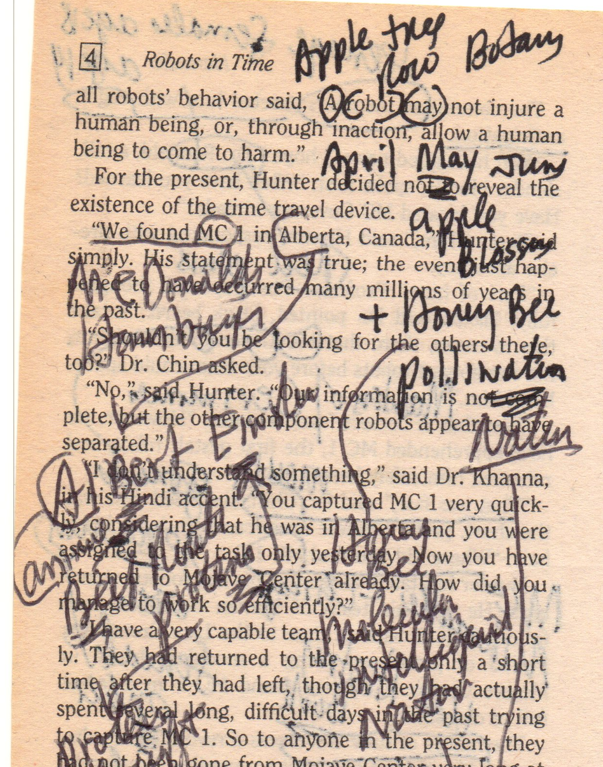 4 Robots in Time
Apple tree
now Botany
all robots' behavior said, "A robot may not injure a
human being, or, through inaction, allow a human
being to come to harm."
April May June
For the present, Hunter decided not to reveal the
existence of the time travel device.
apple
"We found MC 1 in Alberta, Canada," Hunter said
blossom
simply. His statement was true; the event just hap-
pened to have occurred many millions of years in
the past.
McDonalds
Hamburger
+ Honey Bee
"Shouldn't you be looking for the others there,
too?" Dr. Chin asked.
pollination
"No," said Hunter. "Our information is not com-
plete, but the other component robots appear to have
separated."
Nation
"I don't understand something," said Dr. Khanna,
in his Hindi accent. "You captured MC 1 very quick-
ly, considering that he was in Alberta and you were
assigned to the task only yesterday. Now you have
returned to Mojave Center already. How did you
manage to work so efficiently?"
A Best
Best
protein
Honey
bee
molecular
intelligent
Nation
"I have a very capable team," said Hunter cautious-
ly. They had returned to the present only a short
time after they had left, though they had actually
spent several long, difficult days in the past trying
to capture MC 1. So to anyone in the present, they
had not been gone from Mojave Center very long at